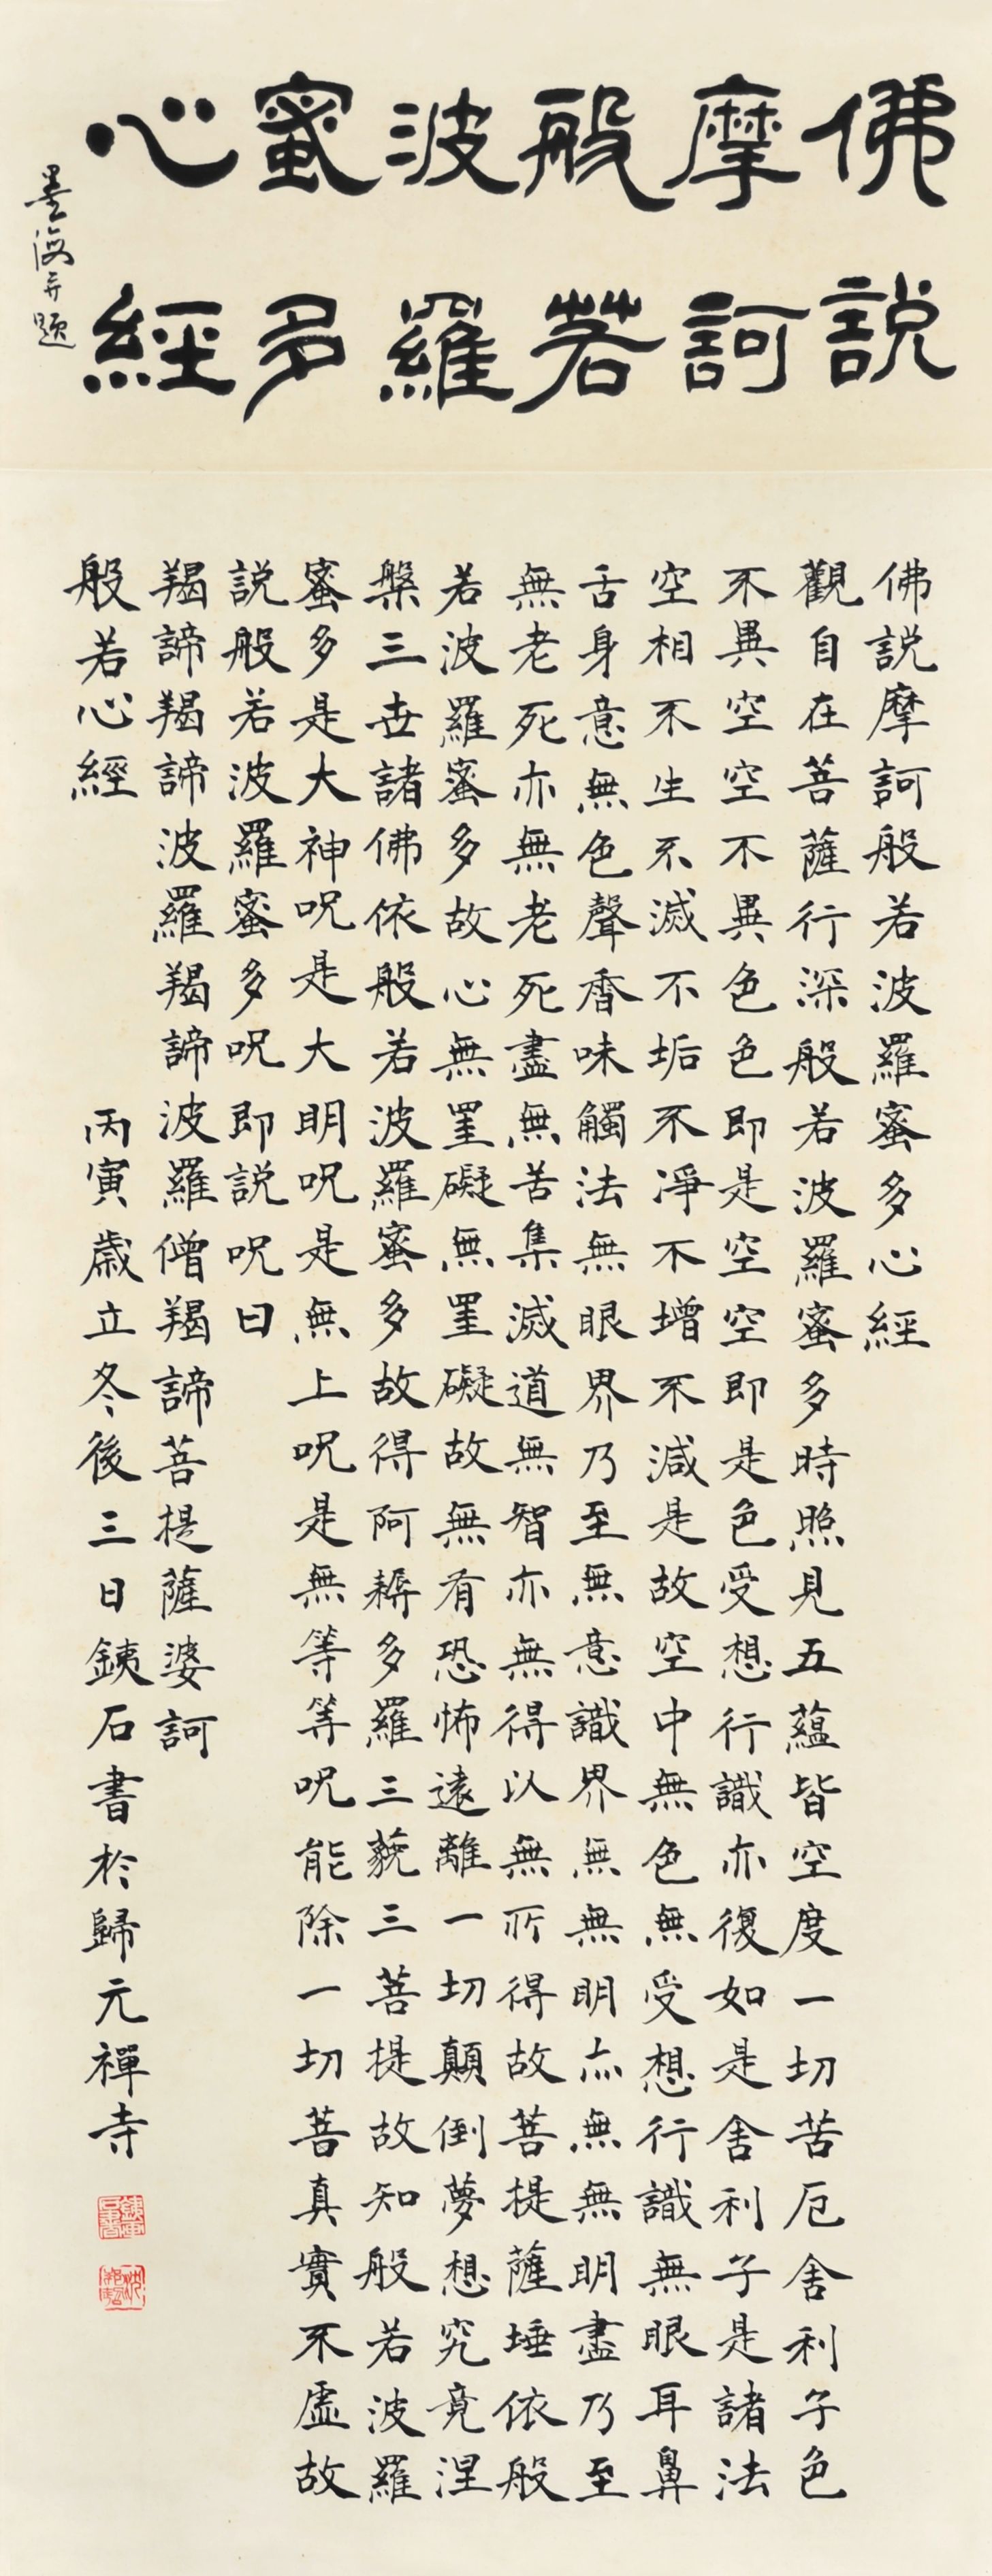 佛說
摩訶
般若
波羅
蜜多
心經
墨海題
佛説摩訶般若波羅蜜多心經
觀自在菩薩行深般若波羅蜜多時照見五蘊皆空度一切苦厄舍利子色
不異空空不異色色即是空空即是色受想行識亦復如是舍利子是諸法
空相不生不滅不垢不淨不增不減是故空中無色無受想行識無眼耳鼻
舌身意無色聲香味觸法無眼界乃至無意識界無無明亦無無明盡乃至
無老死亦無老死盡無苦集滅道無智亦無得以無所得故菩提薩埵依般
若波羅蜜多故心無罣礙無罣礙故無有恐怖遠離一切顛倒夢想究竟涅
槃三世諸佛依般若波羅蜜多故得阿耨多羅三藐三菩提故知般若波羅
蜜多是大神呪是大明呪是無上呪是無等等呪能除一切菩真實不虛故
説般若波羅蜜多呪即説呪曰
羯諦羯諦波羅羯諦波羅僧羯諦菩提薩婆訶
般若心經
丙寅歲立冬後三日銕石書於歸元禪寺